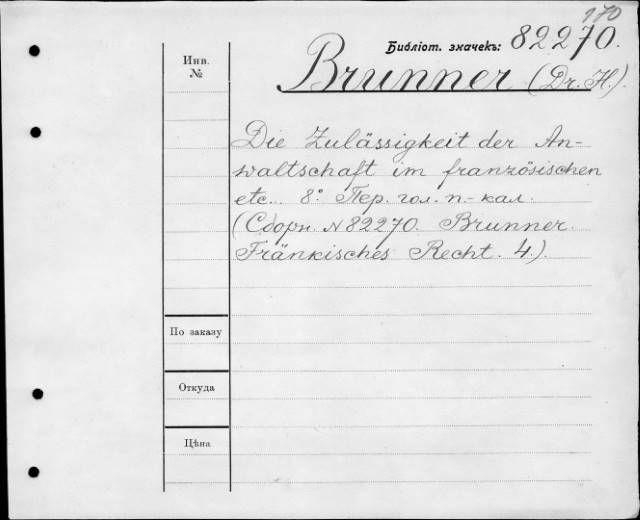 170
Библіот. значекъ: 82270.
Инв.
№
Brunner (Dr. H.).
Die Zulässigkeit der An-
waltschaft im französischen
etc... 8° Пер. гол. п.-кал.
(Сборн. № 82270. Brunner.
Fränkisches Recht. 4.).
По заказу
Откуда
Цѣна